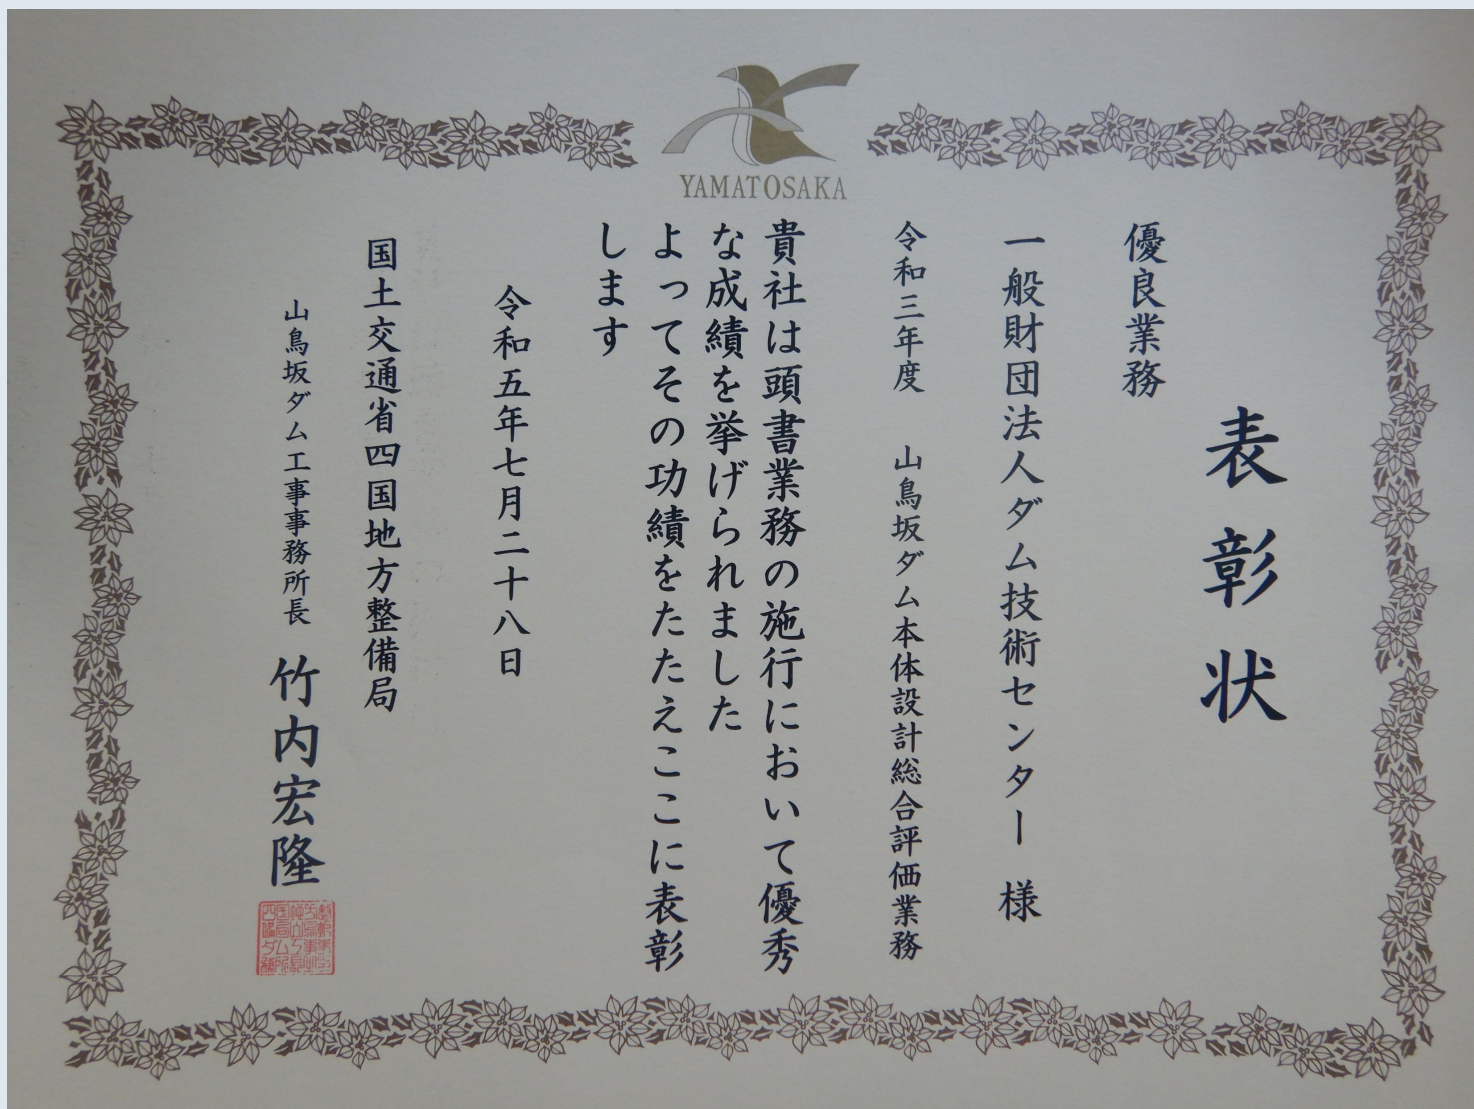 YAMATOSAKA
表彰状
優良業務
一般財団法人ダム技術センター 様
令和三年度 山鳥坂ダム本体設計総合評価業務
貴社は頭書業務の施行において優秀
な成績を挙げられました
よってその功績をたたえここに表彰
します
令和五年七月二十八日
国土交通省四国地方整備局
山鳥坂ダム工事事務所長 竹内宏隆